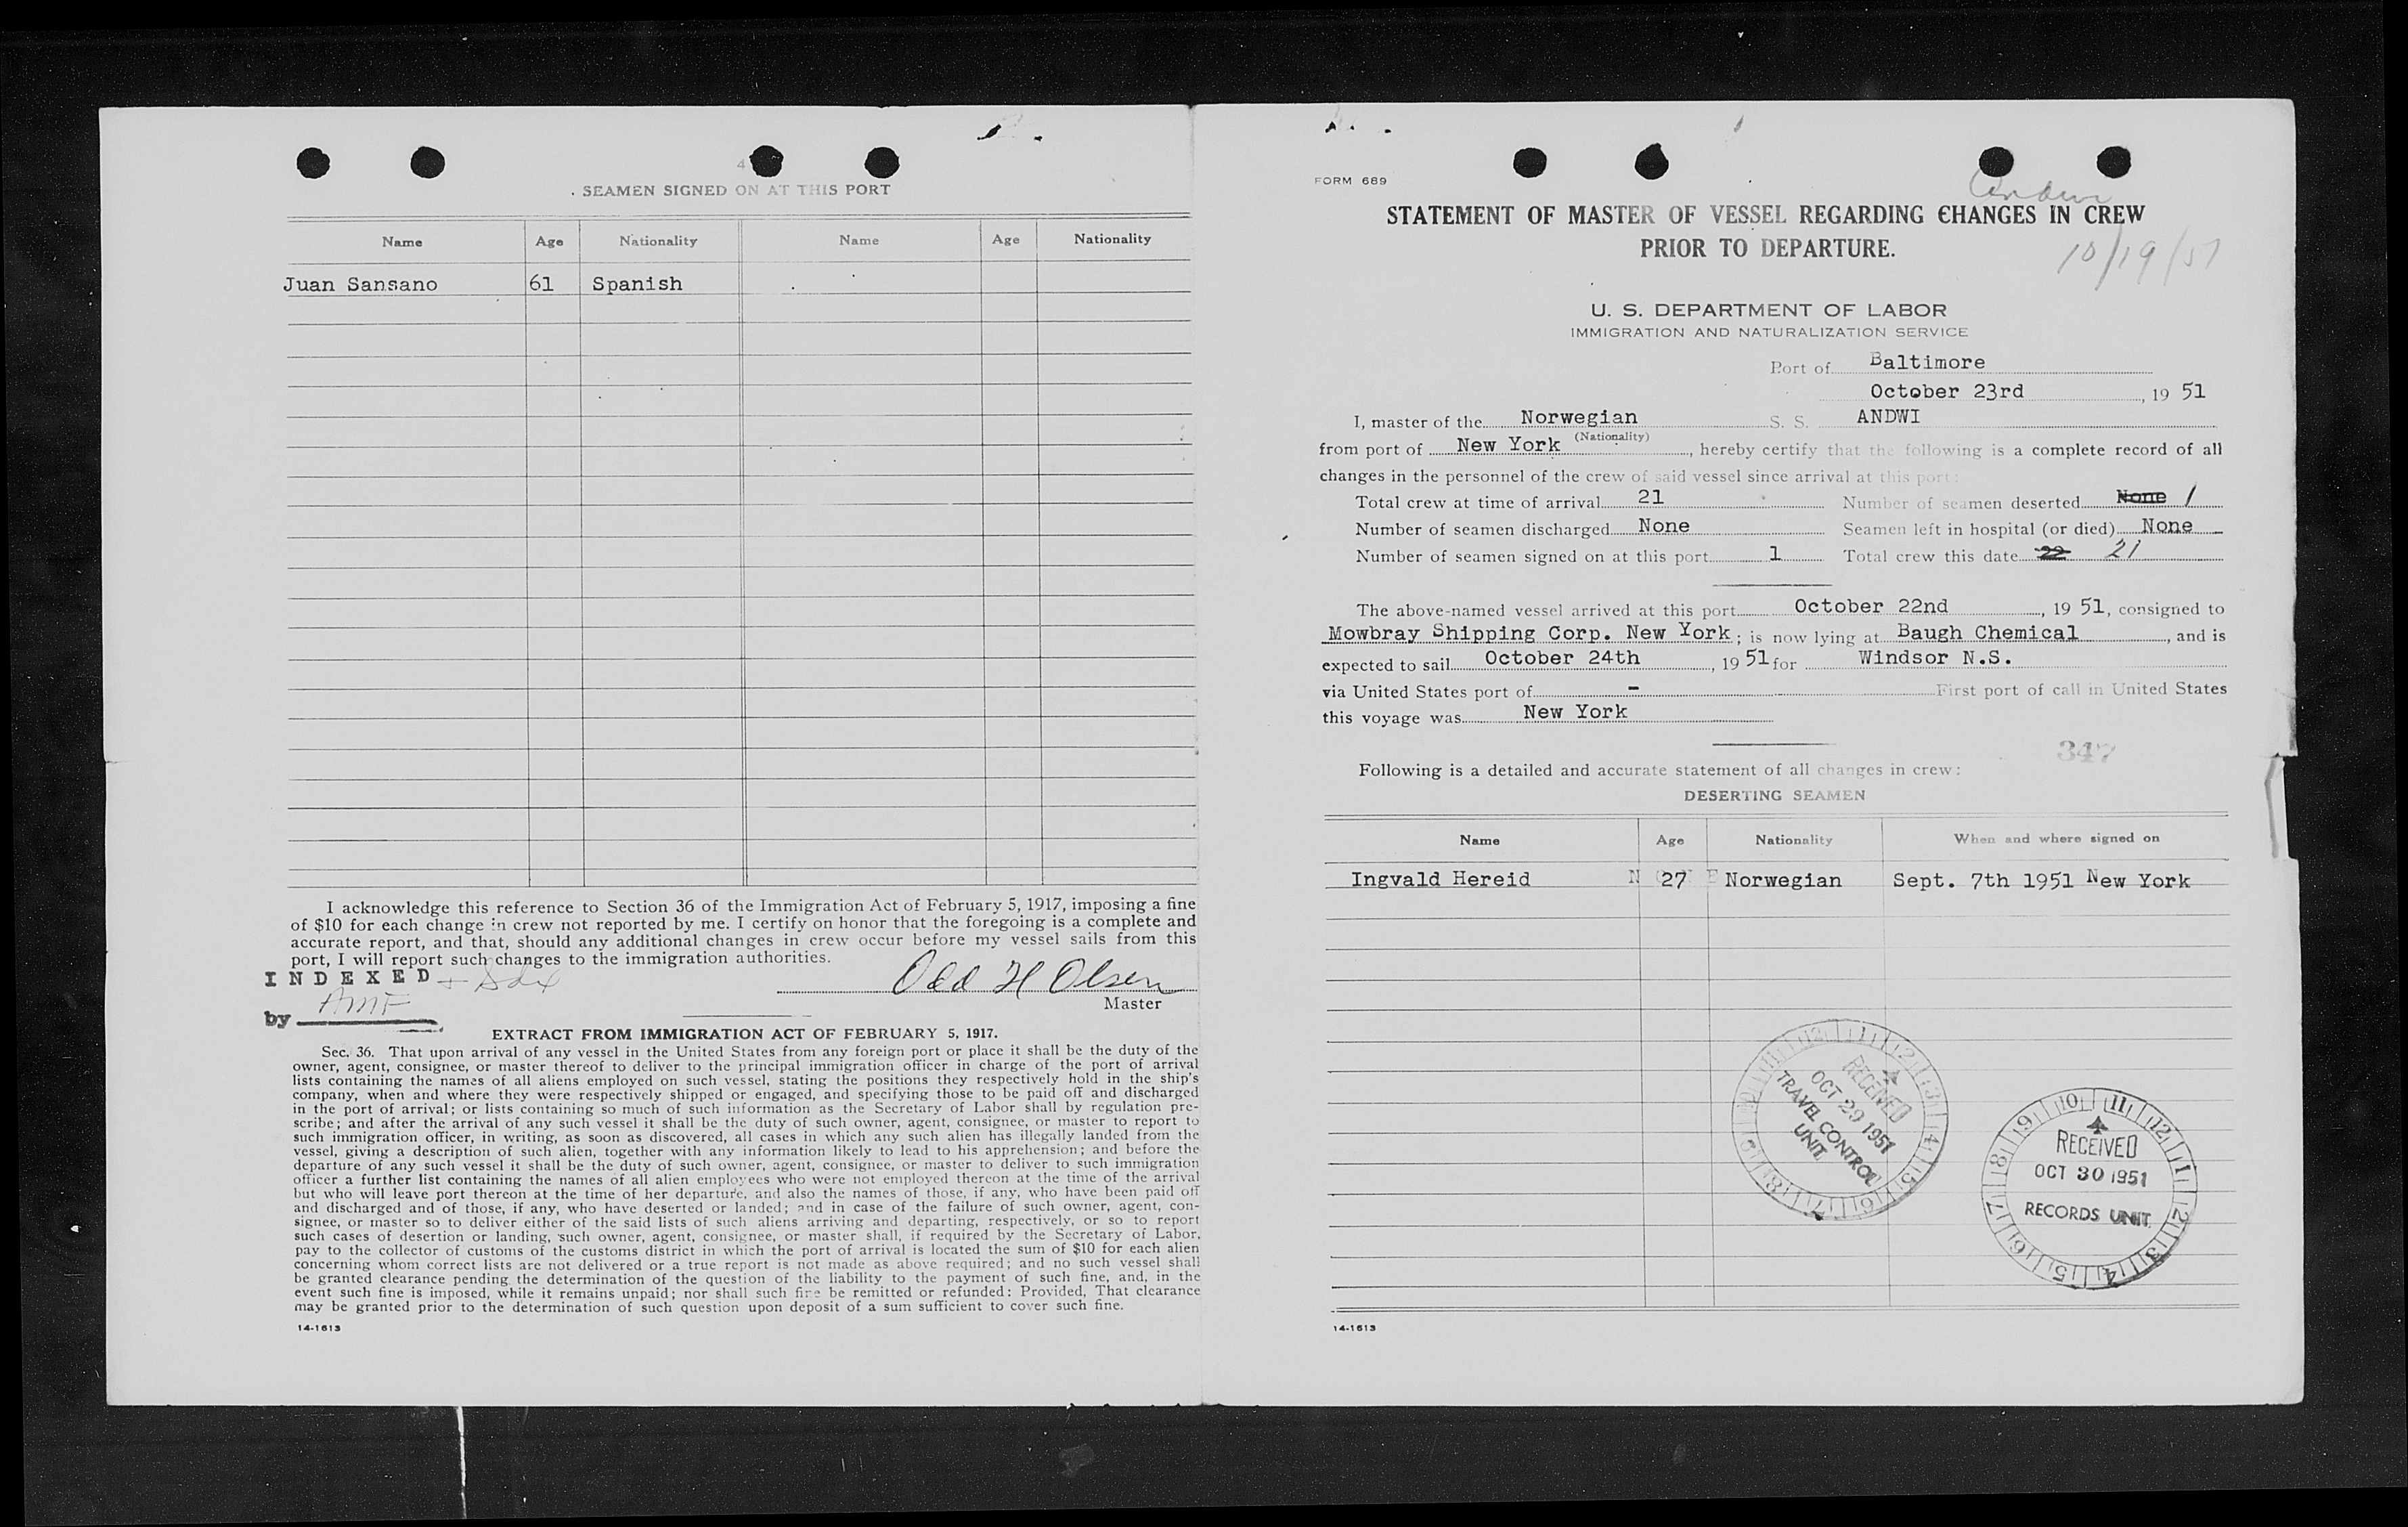 4
SEAMEN SIGNED ON AT THIS PORT
Name Age Nationality Name Age Nationality
Juan Sansano 61 Spanish
I acknowledge this reference to Section 36 of the Immigration Act of February 5, 1917, imposing a fine
of $10 for each change in crew not reported by me. I certify on honor that the foregoing is a complete and
accurate report, and that, should any additional changes in crew occur before my vessel sails from this
port, I will report such changes to the immigration authorities.
INDEXED
by AMF
Odd H Olsen
Master
EXTRACT FROM IMMIGRATION ACT OF FEBRUARY 5, 1917.
Sec. 36. That upon arrival of any vessel in the United States from any foreign port or place it shall be the duty of the
owner, agent, consignee, or master thereof to deliver to the principal immigration officer in charge of the port of arrival
lists containing the names of all aliens employed on such vessel, stating the positions they respectively hold in the ship's
company, when and where they were respectively shipped or engaged, and specifying those to be paid off and discharged
in the port of arrival; or lists containing so much of such information as the Secretary of Labor shall by regulation pre-
scribe; and after the arrival of any such vessel it shall be the duty of such owner, agent, consignee, or master to report to
such immigration officer, in writing, as soon as discovered, all cases in which any such alien has illegally landed from the
vessel, giving a description of such alien, together with any information likely to lead to his apprehension; and before the
departure of any such vessel it shall be the duty of such owner, agent, consignee, or master to deliver to such immigration
officer a further list containing the names of all alien employees who were not employed thereon at the time of the arrival
but who will leave port thereon at the time of her departure, and also the names of those, if any, who have been paid off
and discharged and of those, if any, who have deserted or landed; and in case of the failure of such owner, agent, con-
signee, or master so to deliver either of the said lists of such aliens arriving and departing, respectively, or so to report
such cases of desertion or landing, such owner, agent, consignee, or master shall, if required by the Secretary of Labor,
pay to the collector of customs of the customs district in which the port of arrival is located the sum of $10 for each alien
concerning whom correct lists are not delivered or a true report is not made as above required; and no such vessel shall
be granted clearance pending the determination of the question of the liability to the payment of such fine, and, in the
event such fine is imposed, while it remains unpaid; nor shall such fine be remitted or refunded: Provided, That clearance
may be granted prior to the determination of such question upon deposit of a sum sufficient to cover such fine.
14-1613
FORM 689
Andwi
STATEMENT OF MASTER OF VESSEL REGARDING CHANGES IN CREW
PRIOR TO DEPARTURE.
10/19/51
U. S. DEPARTMENT OF LABOR
IMMIGRATION AND NATURALIZATION SERVICE
Port of Baltimore
October 23rd, 19 51
I, master of the Norwegian S. S. ANDWI
(Nationality)
from port of New York, hereby certify that the following is a complete record of all
changes in the personnel of the crew of said vessel since arrival at this port:
Total crew at time of arrival 21 Number of seamen deserted None 1
Number of seamen discharged None Seamen left in hospital (or died) None
Number of seamen signed on at this port 1 Total crew this date 22 21
The above-named vessel arrived at this port October 22nd, 19 51, consigned to
Mowbray Shipping Corp. New York; is now lying at Baugh Chemical, and is
expected to sail October 24th, 19 51 for Windsor N.S.
via United States port of - First port of call in United States
this voyage was New York
347
Following is a detailed and accurate statement of all changes in crew:
DESERTING SEAMEN
Name Age Nationality When and where signed on
Ingvald Hereid 27 Norwegian Sept. 7th 1951 New York
RECEIVED
OCT 29 1951
TRAVEL CONTROL
UNIT
RECEIVED
OCT 30 1951
RECORDS UNIT
14-1613